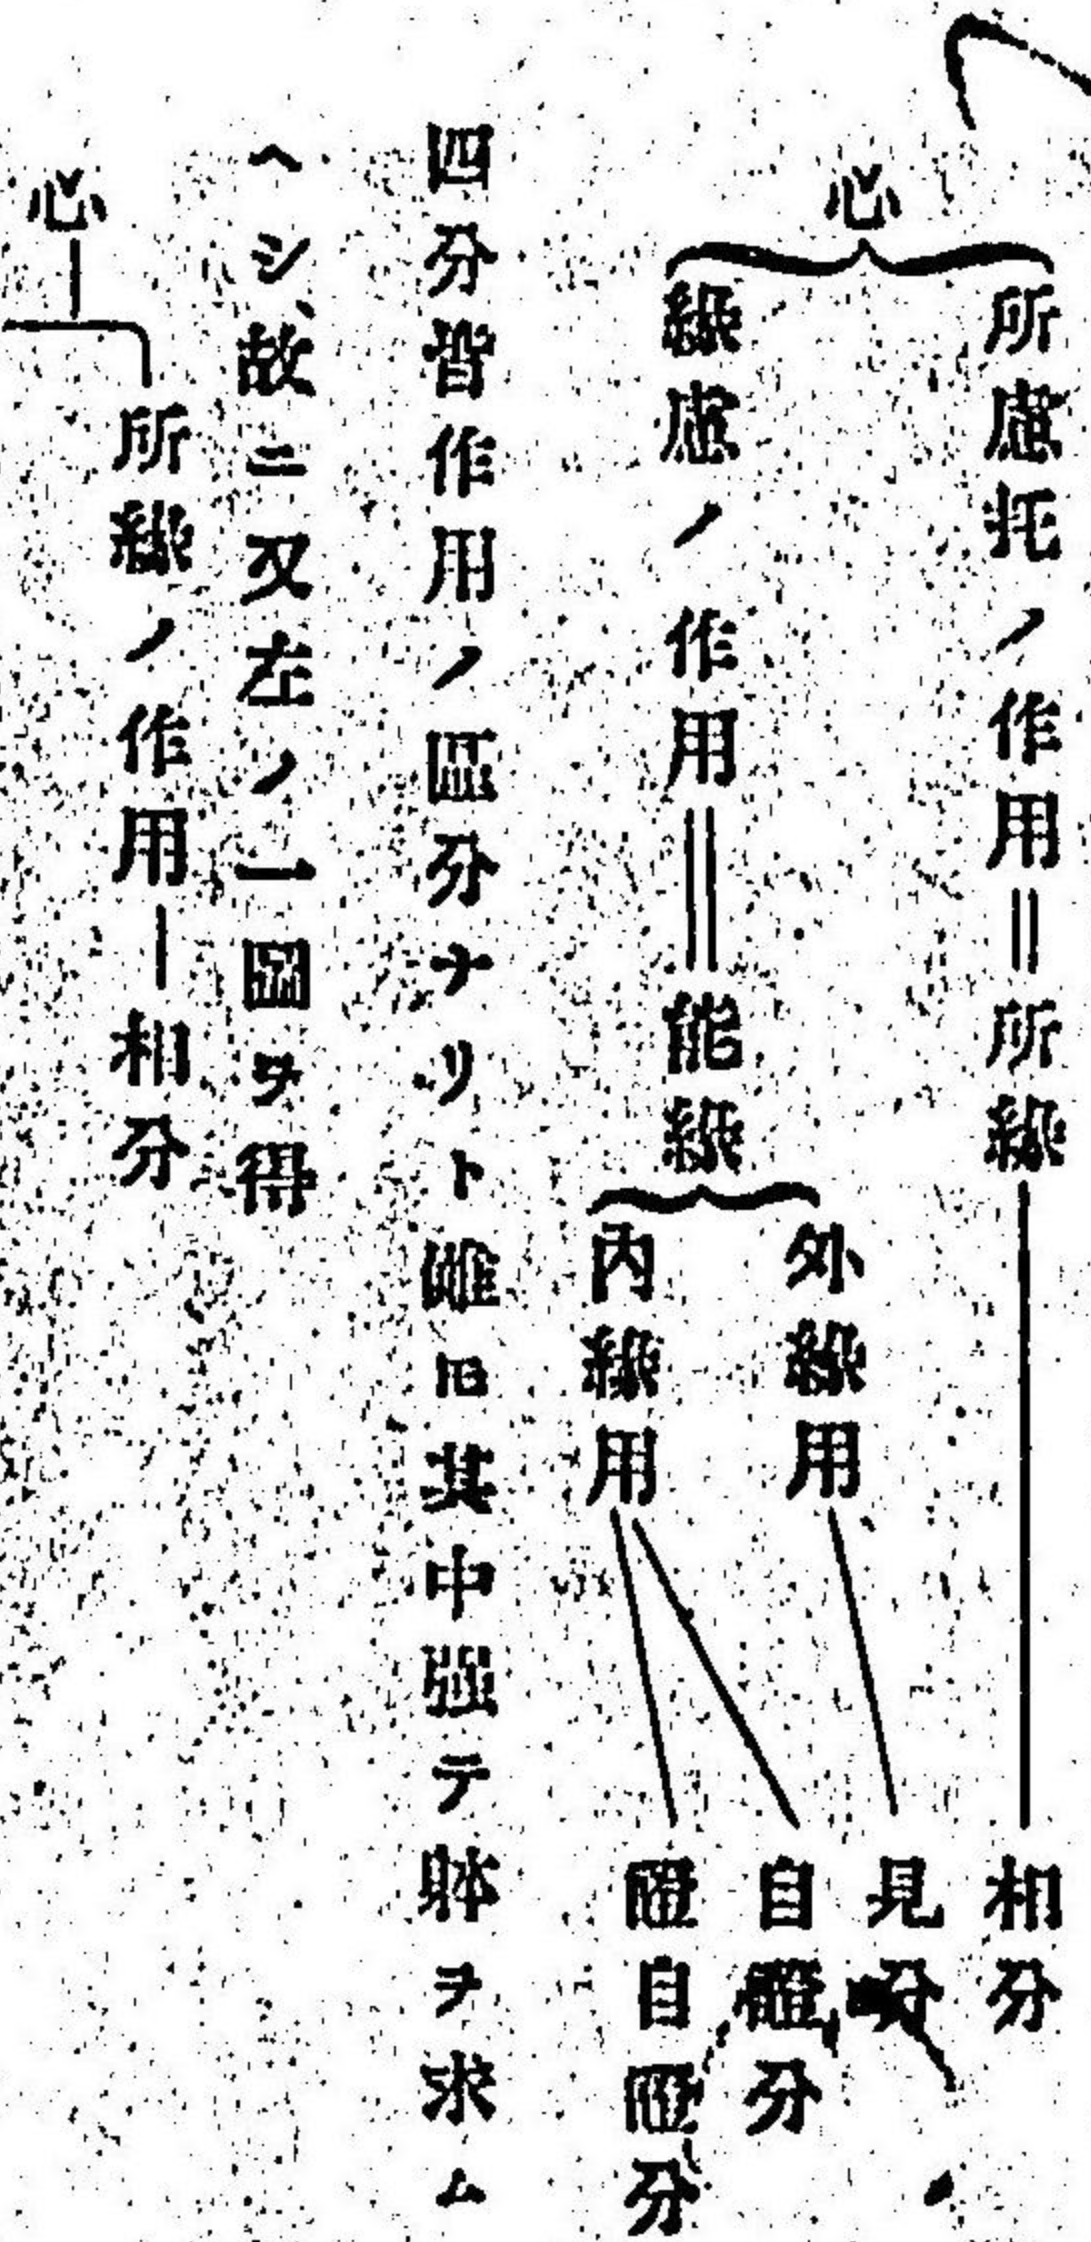 心
所慮托ノ作用＝所緣
相分
緣慮ノ作用＝能緣
外緣用
見分
內緣用
自證分
證自證分
四分皆作用ノ區分ナリト雖𪜈其中强テ躰ヲ求ム
ヘシ、故ニ又左ノ一圖ヲ得
心
所緣ノ作用―相分